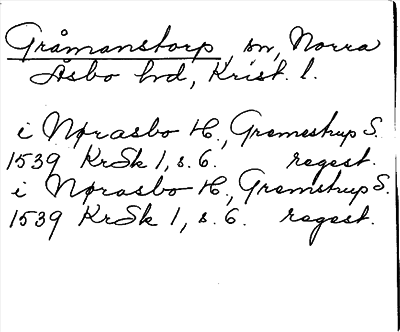 Gråmanstorp sn, Norra
Åsbo hd, Krist. l.
i Nørasbo H., Gramestrup S.
1539 KrSk 1, s. 6. regest.
i Nørasbo H., Gramstrup S.
1539 KrSk 1, s. 6. regest.